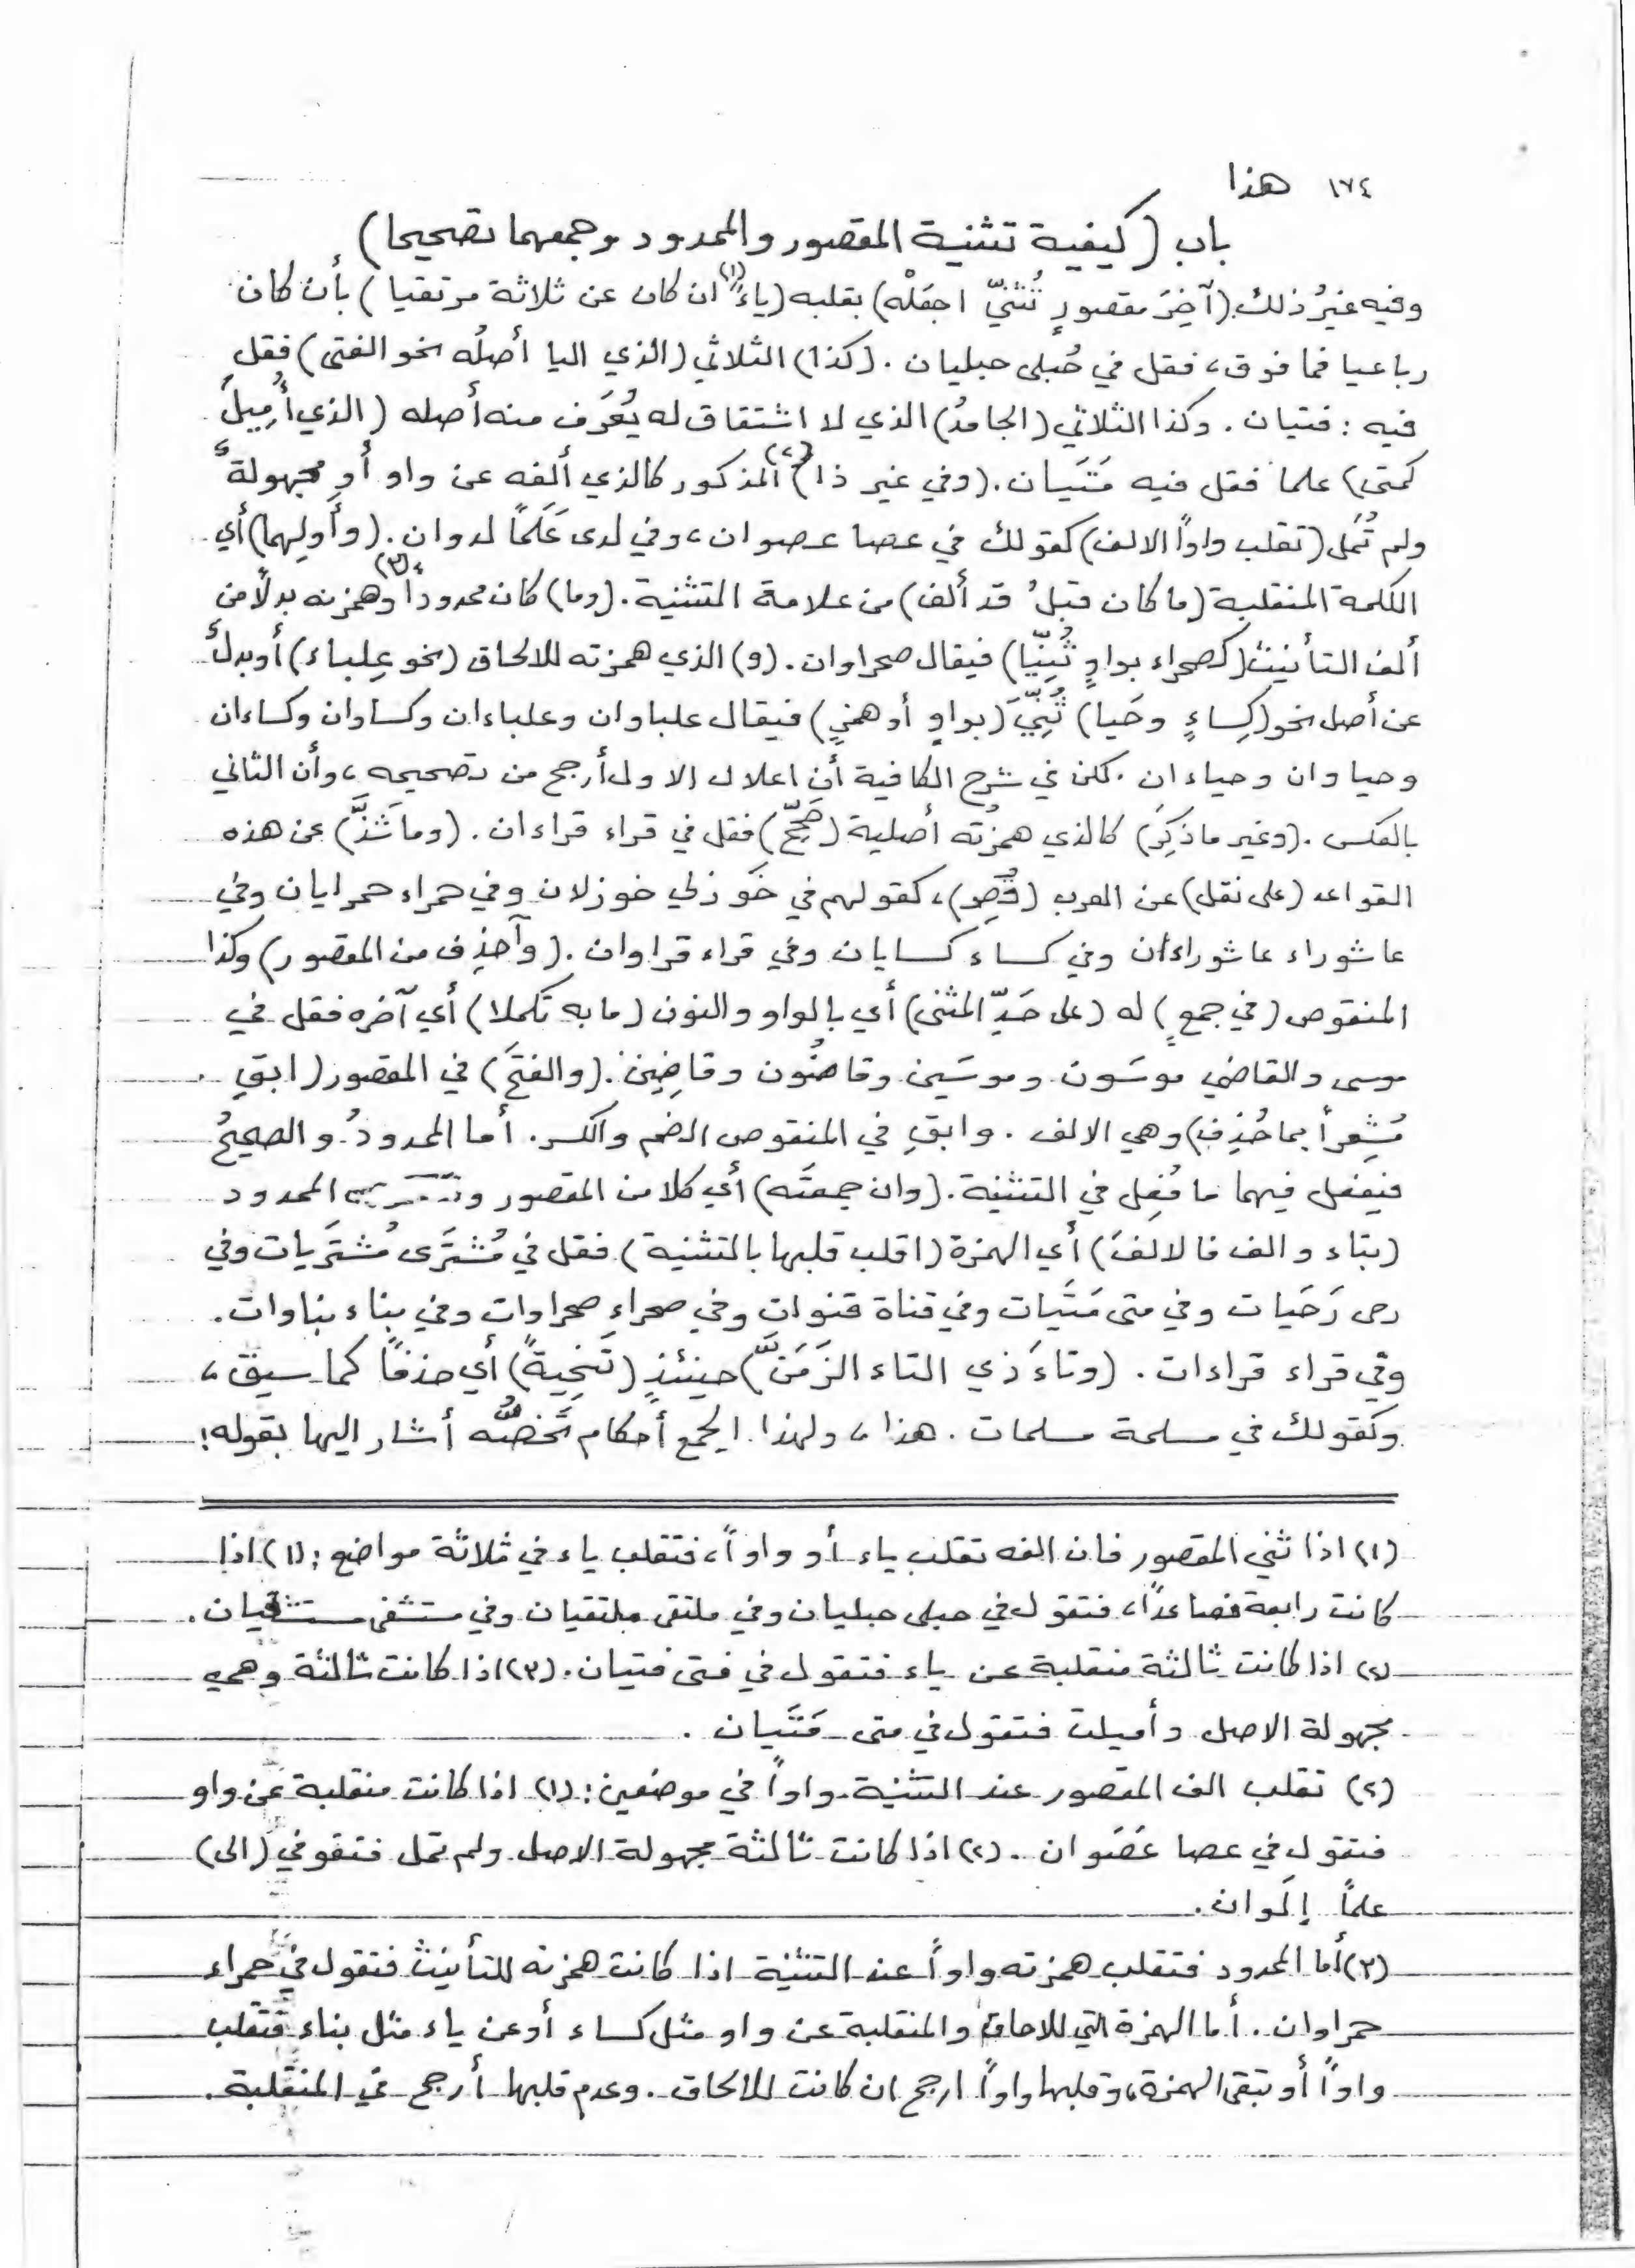 ١٧٤ هذا
باب (كيفية تثنية المقصور والممدود وجمعهما تصحيحا)
وفيه غيرُ ذلك. (آخِرَ مقصورٍ تُثَنّي اجعَلْه) بقلبه (ياءً)(١) ان كان عن ثلاثة مرتقيا) بأن كان
رباعيا فما فوق، فقل في حُبلى حبليان. (كذا) الثلاثي (الذي اليا أصلُه نحو الفتى) فقل
فيه : فتيان. وكذا الثلاثي (الجامدُ) الذي لا اشتقاق له يُعرَف منه أصله (الذي أُمِيلَ
كمتى) علما فقل فيه مَتَيان. (وفي غير ذا)(٢) المذكور كالذي ألفه عن واو أو مجهولة
ولم تُمَل (تقلب واواً الالف) كقولك في عصا عصوان، وفي لدى عَلَماً لدوان. (وأَولِها) أي
الكلمة المنقلبة (ما كان قبلُ قد ألف) من علامة التثنية. (وما) كان ممدوداً(٣) وهمزته بدلاً من
ألف التأنيث (كصحراء بواوٍ ثُنِيّا) فيقال صحراوان. (و) الذي همزته للالحاق (نحو عِلباء) أو بدلٌ
عن أصل نحو (كِساءٍ وحَيا) ثُنِّيَ (بواوٍ أو همزٍ) فيقال علباوان وعلباءان وكساوان وكساءان
وحياوان وحياءان. لكن في شرح الكافية أن اعلال الاول أرجح من تصحيحه، وأن الثاني
بالعكس. (وغير ما ذُكِرَ) كالذي همزته أصلية (صَحِّح) فقل في قراء قراءان. (وما شَذَّ) عن هذه
القواعد (على نقل) عن العرب (قُصِر)، كقولهم في خَوزلى خوزلان وفي حمراء حمرايان وفي
عاشوراء عاشوراءان وفي كساء كسايان وفي قراء قراوان. (وآحذِف من المقصور) وكذا
المنقوص (في جمعٍ) له (على حَدِّ المثنى) أي بالواو والنون (ما به تكملا) أي آخره فقل في
موسى والقاضي موسَون وموسَين وقاضُون وقاضِين. (والفتحَ) في المقصور (ابقِ
مُشعِراً بما حُذِف) وهي الالف. وابقِ في المنقوص الضم والكسر. أما الممدودُ والصحيحُ
فيفعل فيهما ما فُعِل في التثنية. (وان جمعتَه) أي كلا من المقصور الممدود
(بتاء والف فالالفَ) أي الهمزة (اقلب قلبها بالتثنية). فقل في مُشتَرَى مُشتَرَيات وفي
رحى رَحَيات وفي متى مَتَيات وفي قناة قنوات وفي صحراء صحراوات وفي بناء بناوات.
وفي قراء قراءات. (وتاءَ ذي التاء الزَمَنّ) حينئذٍ (تَنحِيةً) أي حذفاً كما سبق،
وكقولك في مسلمة مسلمات. هذا، ولهذا الجمع أحكام تخصُّه أشار اليها بقوله:
(١) اذا ثني المقصور فان الفه تقلب ياء أو واواً، فتقلب ياء في ثلاثة مواضع : (١) اذا
كانت رابعة فصاعداً، فتقول في حبلى حبليان وفي ملتقى ملتقيان وفي مستشفى مستشفيان.
(٢) اذا كانت ثالثة منقلبة عن ياء فتقول في فتى فتيان. (٣) اذا كانت ثالثة وهي
مجهولة الاصل وأميلت فتقول في متى مَتَيان.
(٢) تقلب الف المقصور عند التثنية واواً في موضعين : (١) اذا كانت منقلبة عن واو
فتقول في عصا عَصَوان. (٢) اذا كانت ثالثة مجهولة الاصل ولم تمل فتقو في (الى)
علماً إلَوان.
(٣) أما الممدود فتقلب همزته واواً عند التثنية اذا كانت همزته للتأنيث فتقول في حمراء
حمراوان. أما الهمزة التي للاحاق والمنقلبة عن واو مثل كساء أو عن ياء مثل بناء فتقلب
واواً أو تبقى الهمزة، وقلبها واواً ارجح ان كانت للالحاق. وعدم قلبها أرجح في المنقلبة.